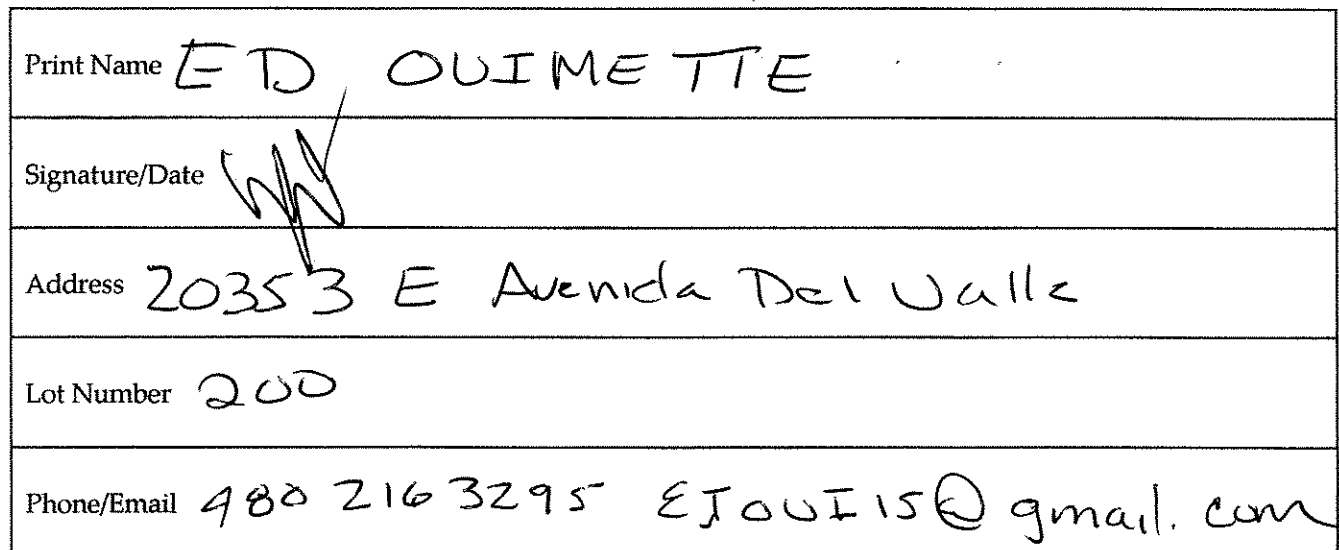 Print Name ED OUIMETTE
Signature/Date
Address 20353 E Avenida Del Valle
Lot Number 200
Phone/Email 480 216 3295 EJOUI15@gmail.com